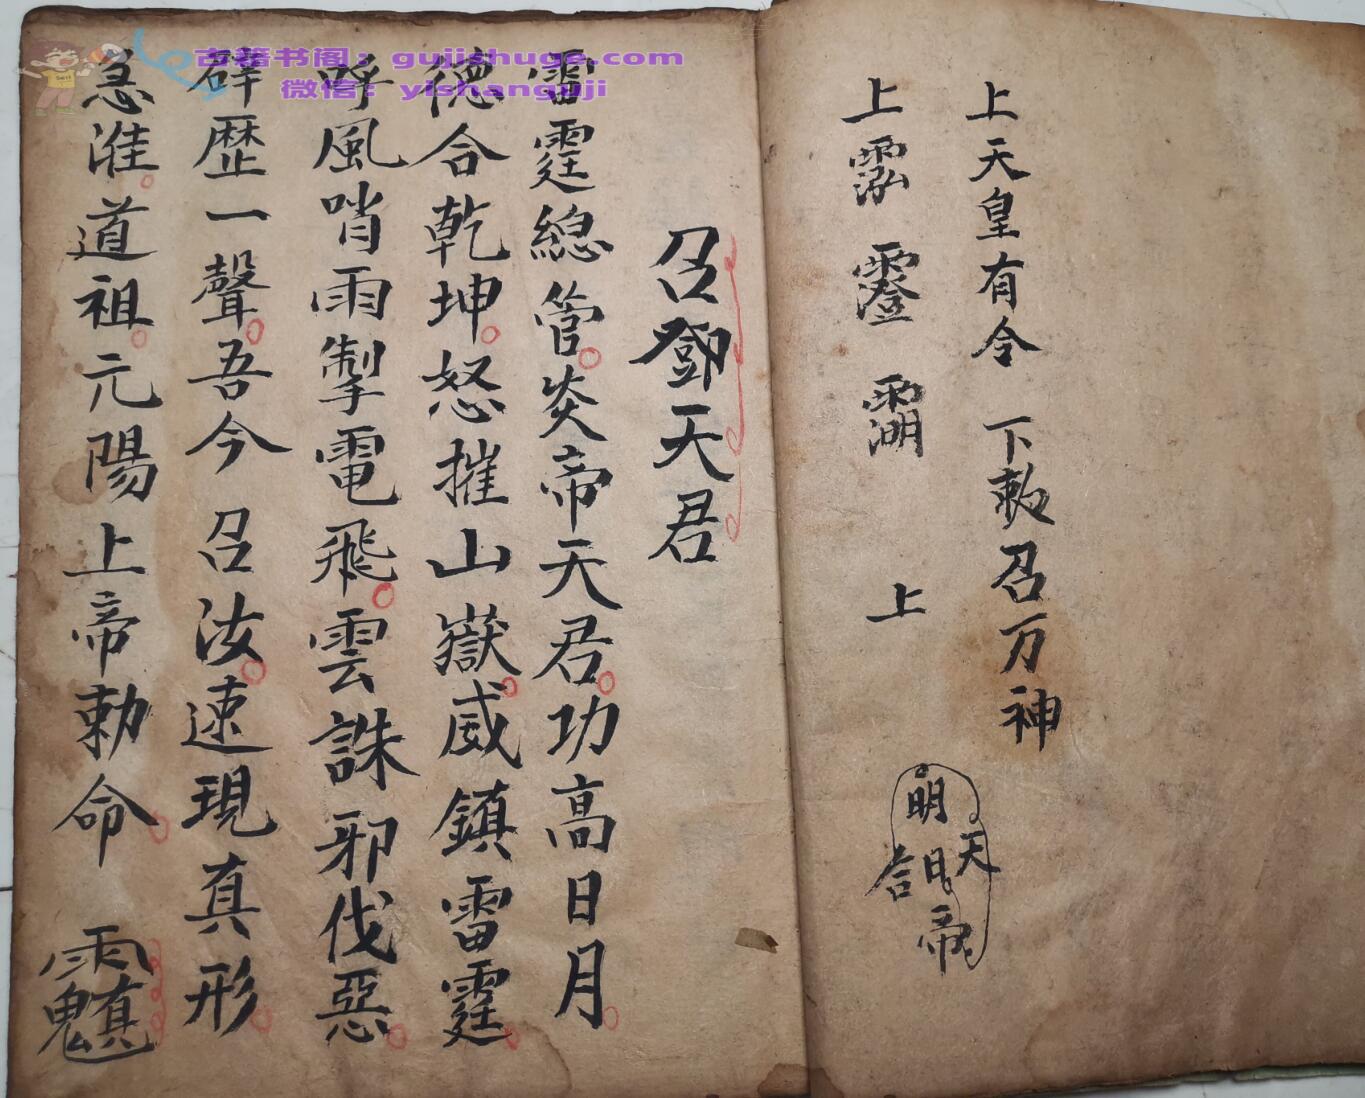 古籍书阁：gujishuge.com
微信：yishanguji
上天皇有令 下敕召万神
上 上
明
天
日
帝
召鄧天君
雷霆總管炎帝天君功高日月
德合乾坤怒摧山嶽威鎮雷霆
呼風哨雨掣電飛雲誅邪伐惡
辟歷一聲吾今召汝速現真形
急准道祖元陽上帝勅命